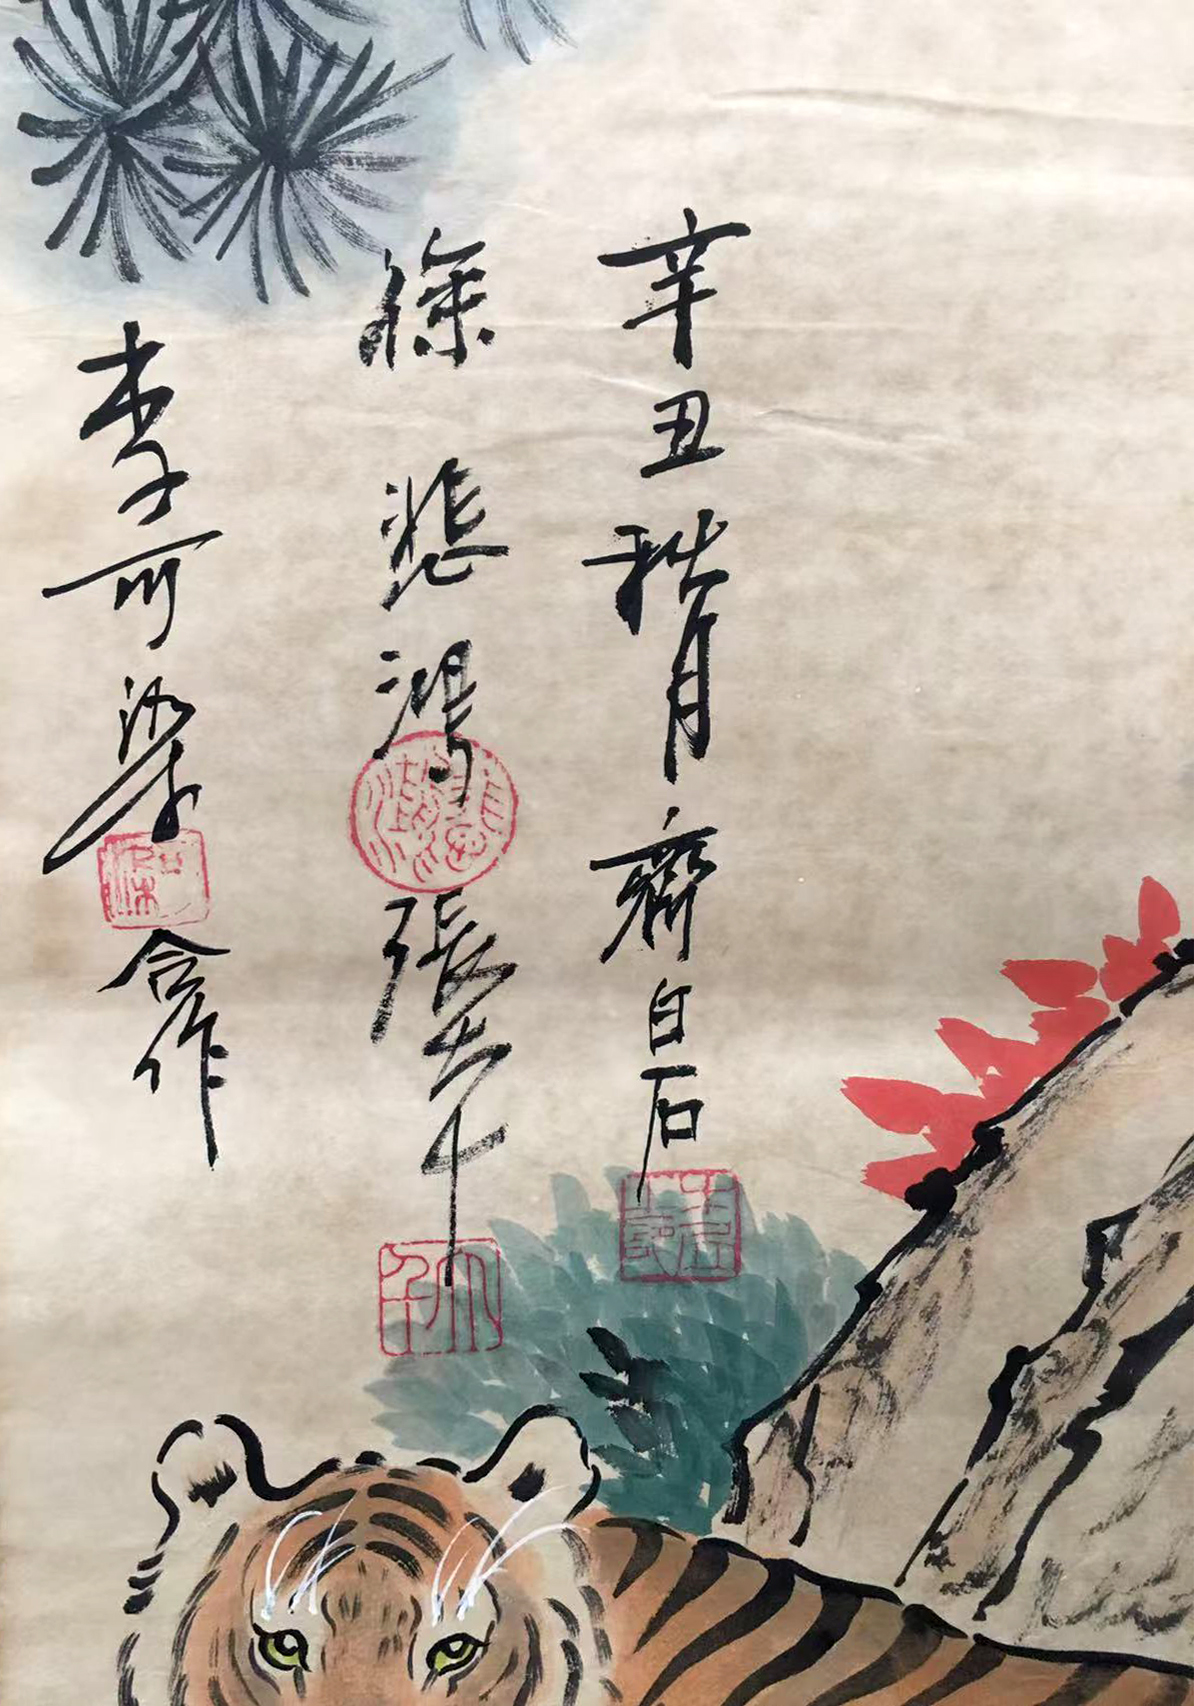 辛丑秋月齊白石
徐悲鴻張大千
李可染合作